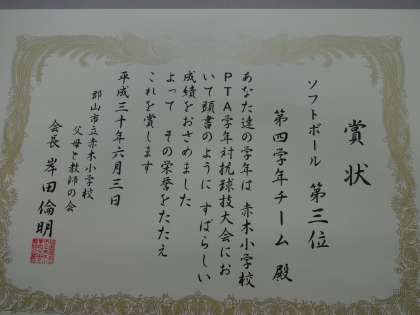 賞状
ソフトボール 第三位
第四学年チーム 殿
あなた達の学年は 赤木小学校
PTA学年対抗球技大会にお
いて頭書のように すばらしい
成績をおさめました
よって その栄誉をたたえ
これを賞します
平成三十年六月三日
郡山市立赤木小学校
父母と教師の会
会長 岸田倫明